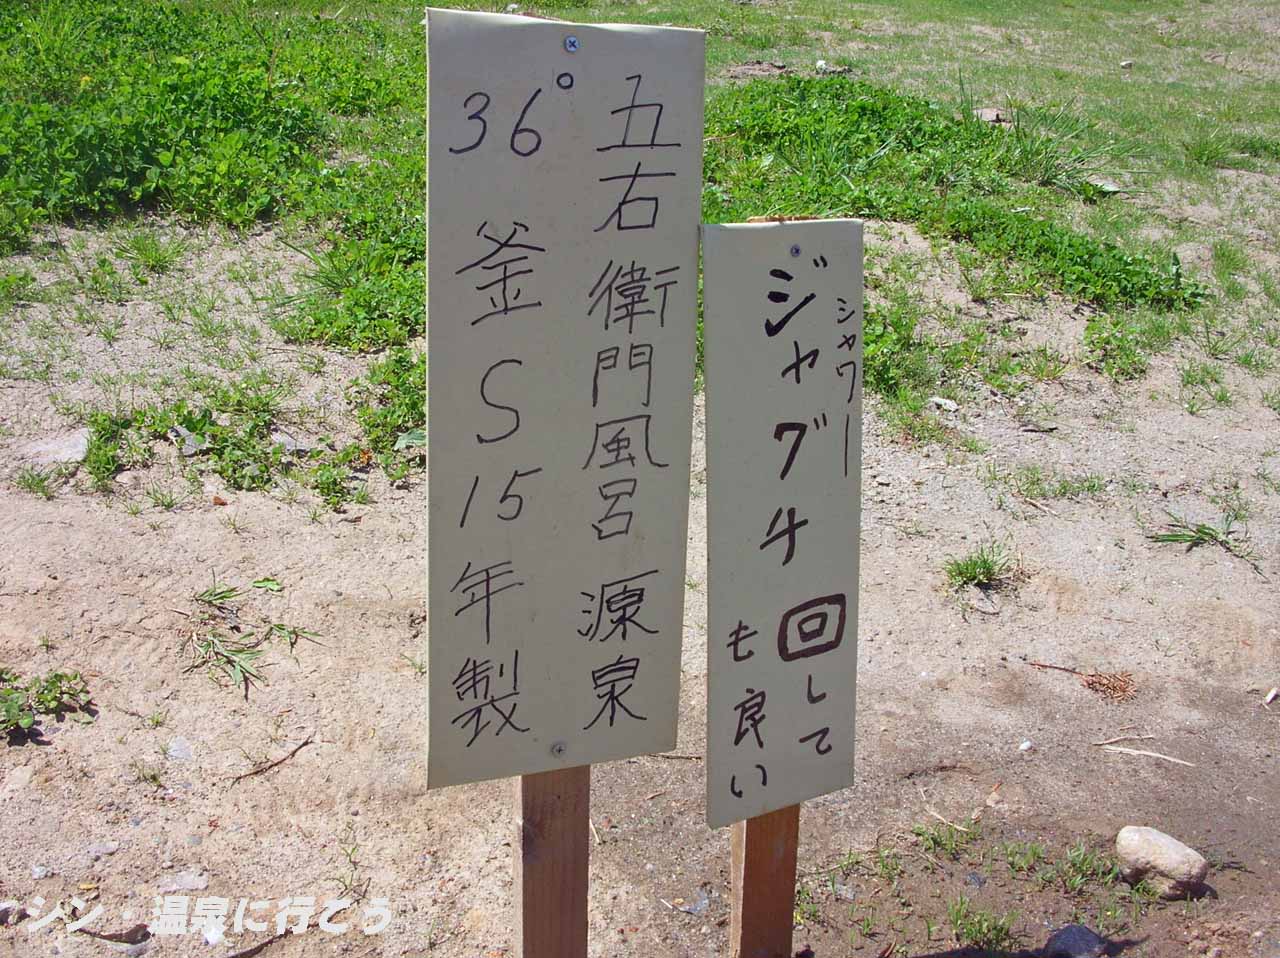 五右衛門風呂 源泉
36° 釜 S15年製
シャワー
ジャグチ 回して
も良い
シン・温泉に行こう